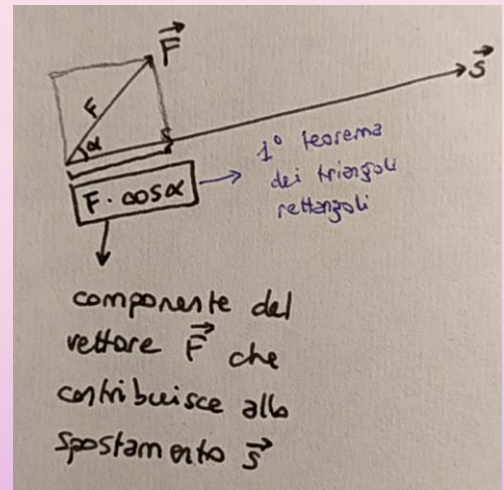 F⃗
s⃗
F
α
F · cosα
1° teorema
dei triangoli
rettangoli
componente del
vettore F⃗ che
contribuisce allo
spostamento s⃗